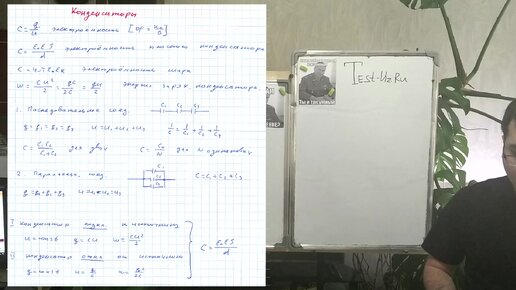 Конденсаторы
C = q/u электроёмкость [Ф = Кл/В]
C = ε₀εS/d электроёмкость плоского конденсатора
C = 4πε₀εR электроёмкость шара
W = Cu²/2 = q²/2C = qu/2 Энергия заряж. конденсатора.
1. Последовательное соед. C₁ C₂ C₃
q = q₁ = q₂ = q₃ u = u₁ + u₂ + u₃ 1/C = 1/C₁ + 1/C₂ + 1/C₃
C = C₁C₂/(C₁+C₂) для двух C = C₀/N для N одинаковых
2. Параллельн. соед. C₁ C₂ C₃ C = C₁ + C₂ + C₃
q = q₁ + q₂ + q₃ u = u₁ = u₂ = u₃
I Конденсатор подкл. к источнику
u = const q = Cu W = Cu²/2
C = ε₀εS/d
II Конденсатор откл. от источника
q = const u = q/C
TEST-UZ.RU